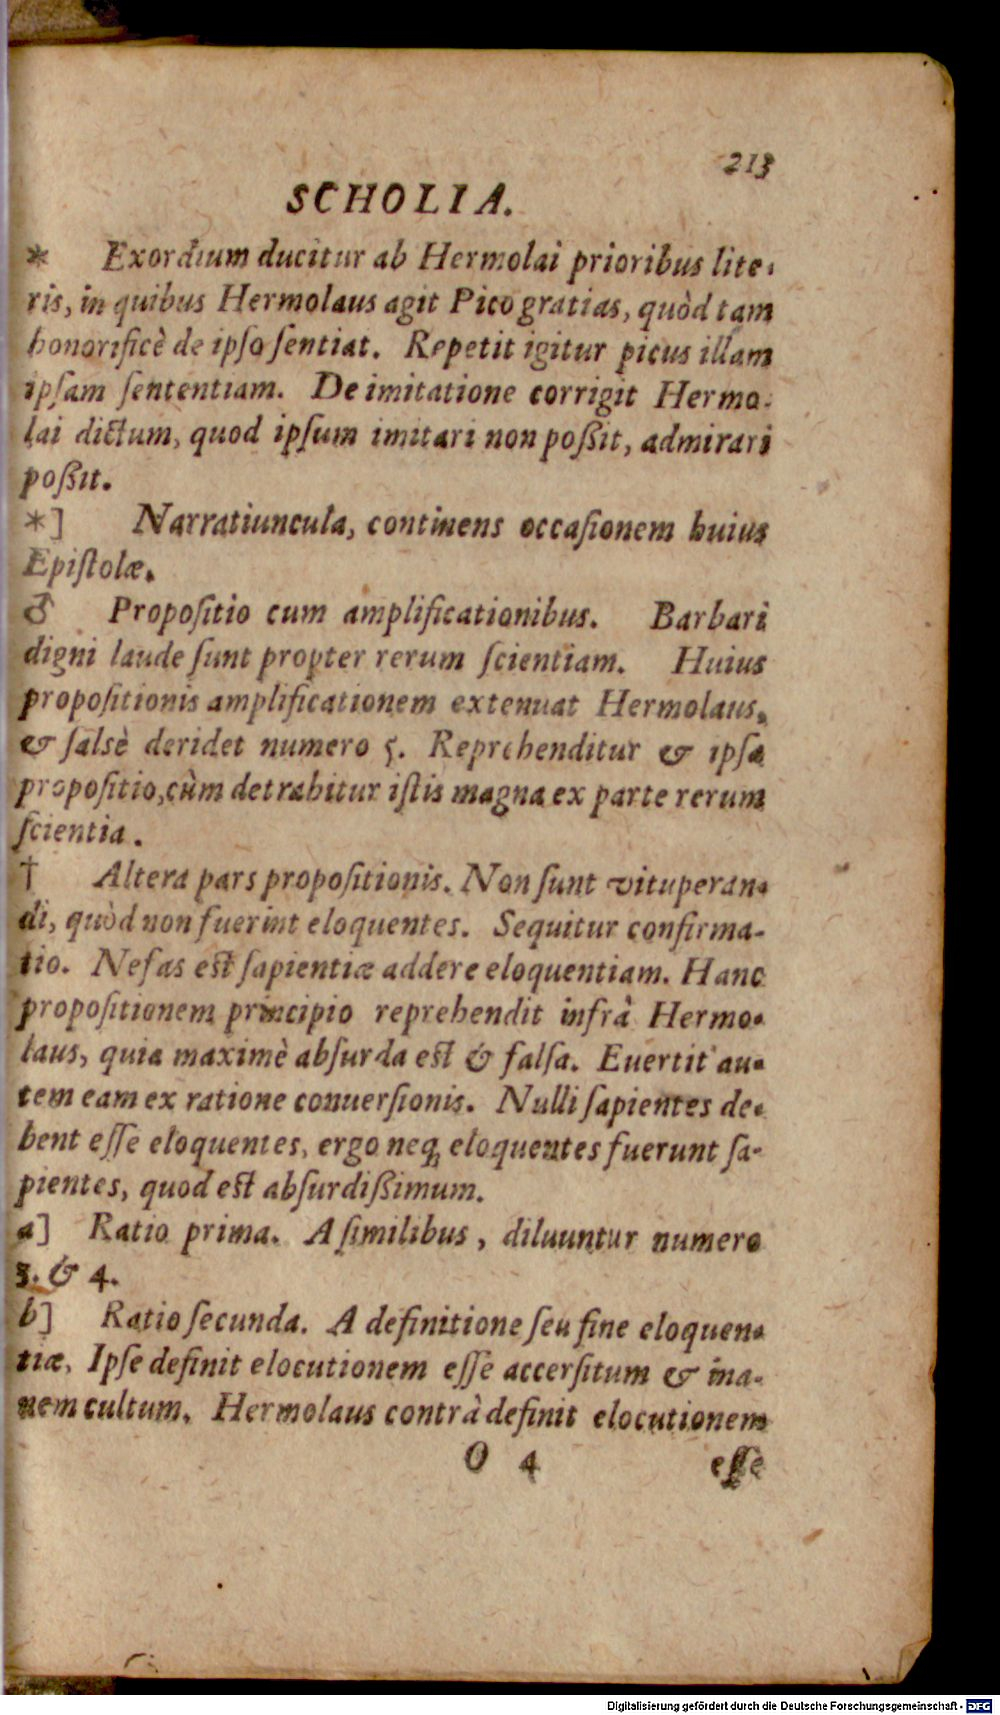 213
SCHOLIA.
* Exordium ducitur ab Hermolai prioribus lite-
ris, in quibus Hermolaus agit Pico gratias, quòd tam
honorificè de ipso sentiat. Repetit igitur picus illam
ipsam sententiam. De imitatione corrigit Hermo-
lai dictum, quod ipsum imitari non poßit, admirari
poßit.
*] Narratiuncula, continens occasionem huius
Epistolæ.
♂ Propositio cum amplificationibus. Barbari
digni laude sunt propter rerum scientiam. Huius
propositionis amplificationem extenuat Hermolaus,
& salsè deridet numero 5. Reprehenditur & ipsa
propositio, cùm detrahitur istis magna ex parte rerum
scientia.
† Altera pars propositionis. Non sunt vituperan-
di, quòd non fuerint eloquentes. Sequitur confirma-
tio. Nefas est sapientiæ addere eloquentiam. Hanc
propositionem principio reprehendit infrà Hermo-
laus, quia maximè absurda est & falsa. Euertit au-
tem eam ex ratione conuersionis. Nulli sapientes de-
bent esse eloquentes, ergo neq; eloquentes fuerunt sa-
pientes, quod est absurdißimum.
a] Ratio prima. A similibus, diluuntur numero
3. & 4.
b] Ratio secunda. A definitione seu fine eloquen-
tiæ. Ipse definit elocutionem esse accersitum & ina-
nem cultum. Hermolaus contrà definit elocutionem
O 4 esse
Digitalisierung gefördert durch die Deutsche Forschungsgemeinschaft - DFG